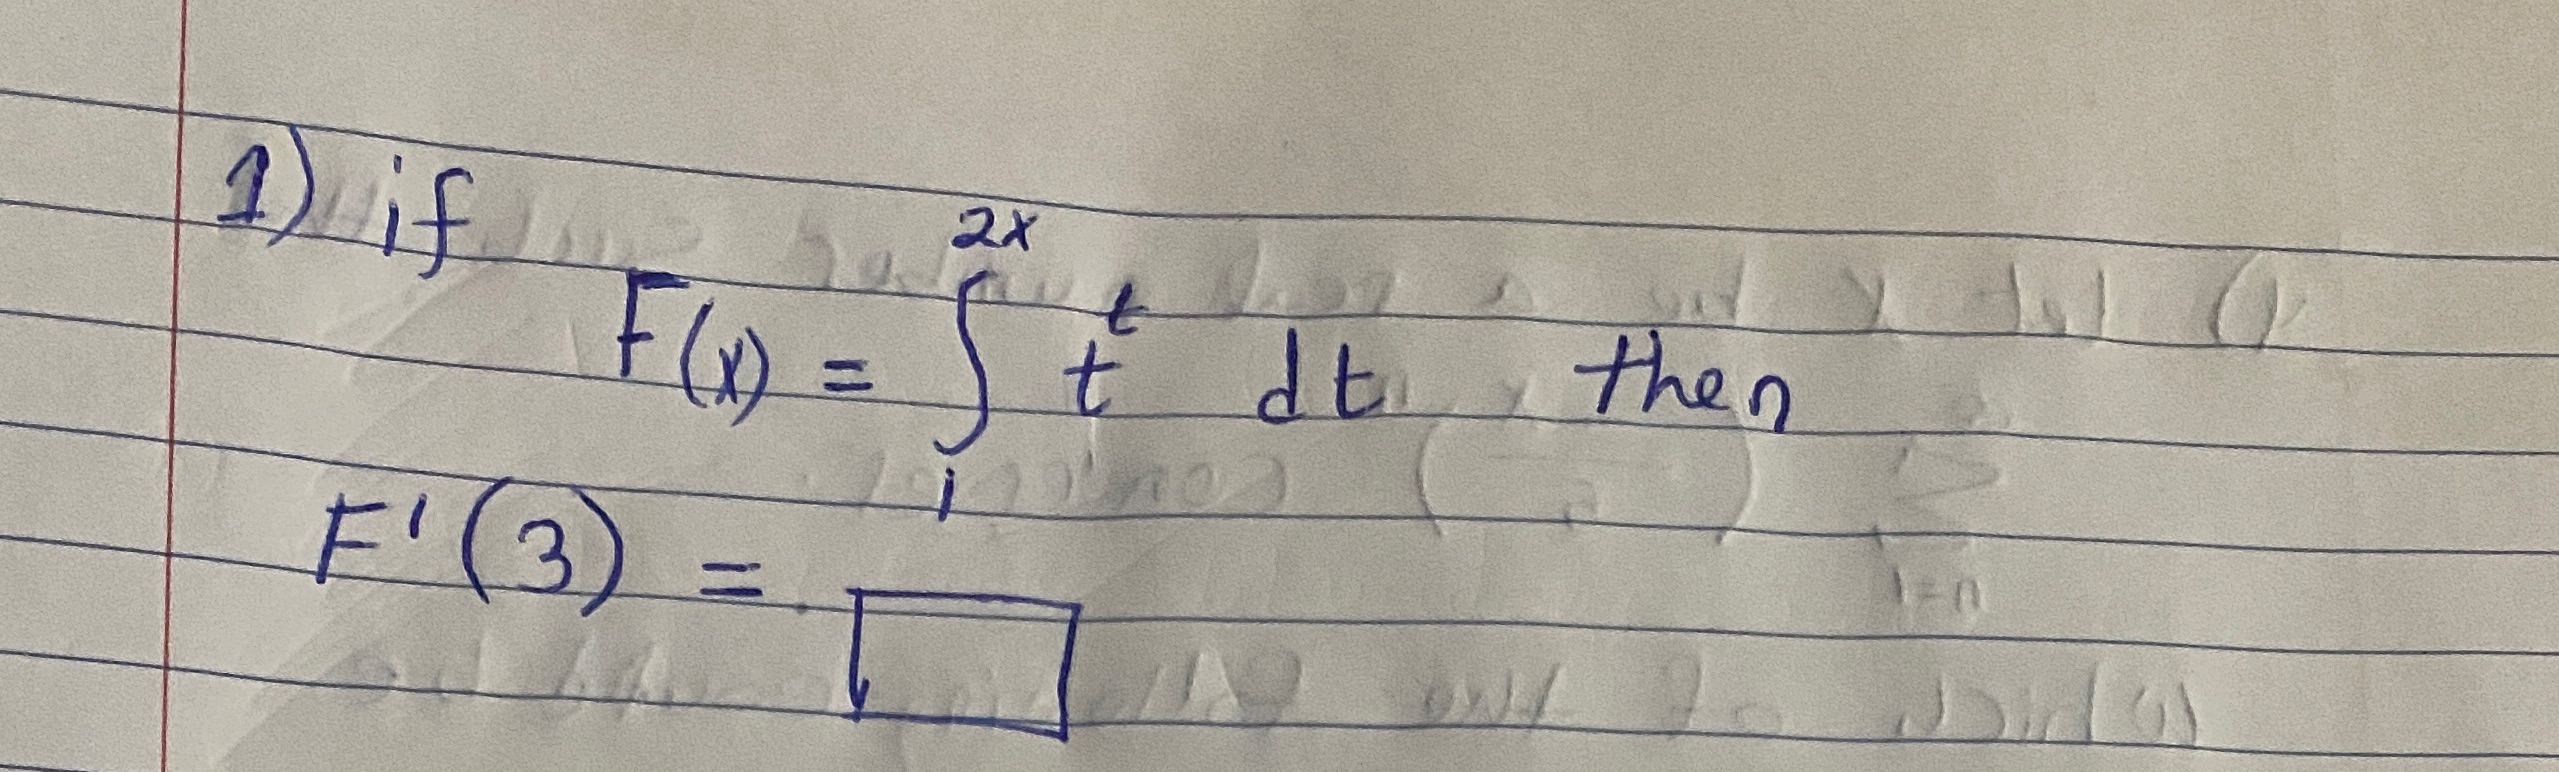 1) if
F(x) = ∫₁²ˣ tᵗ dt then
F'(3) = □